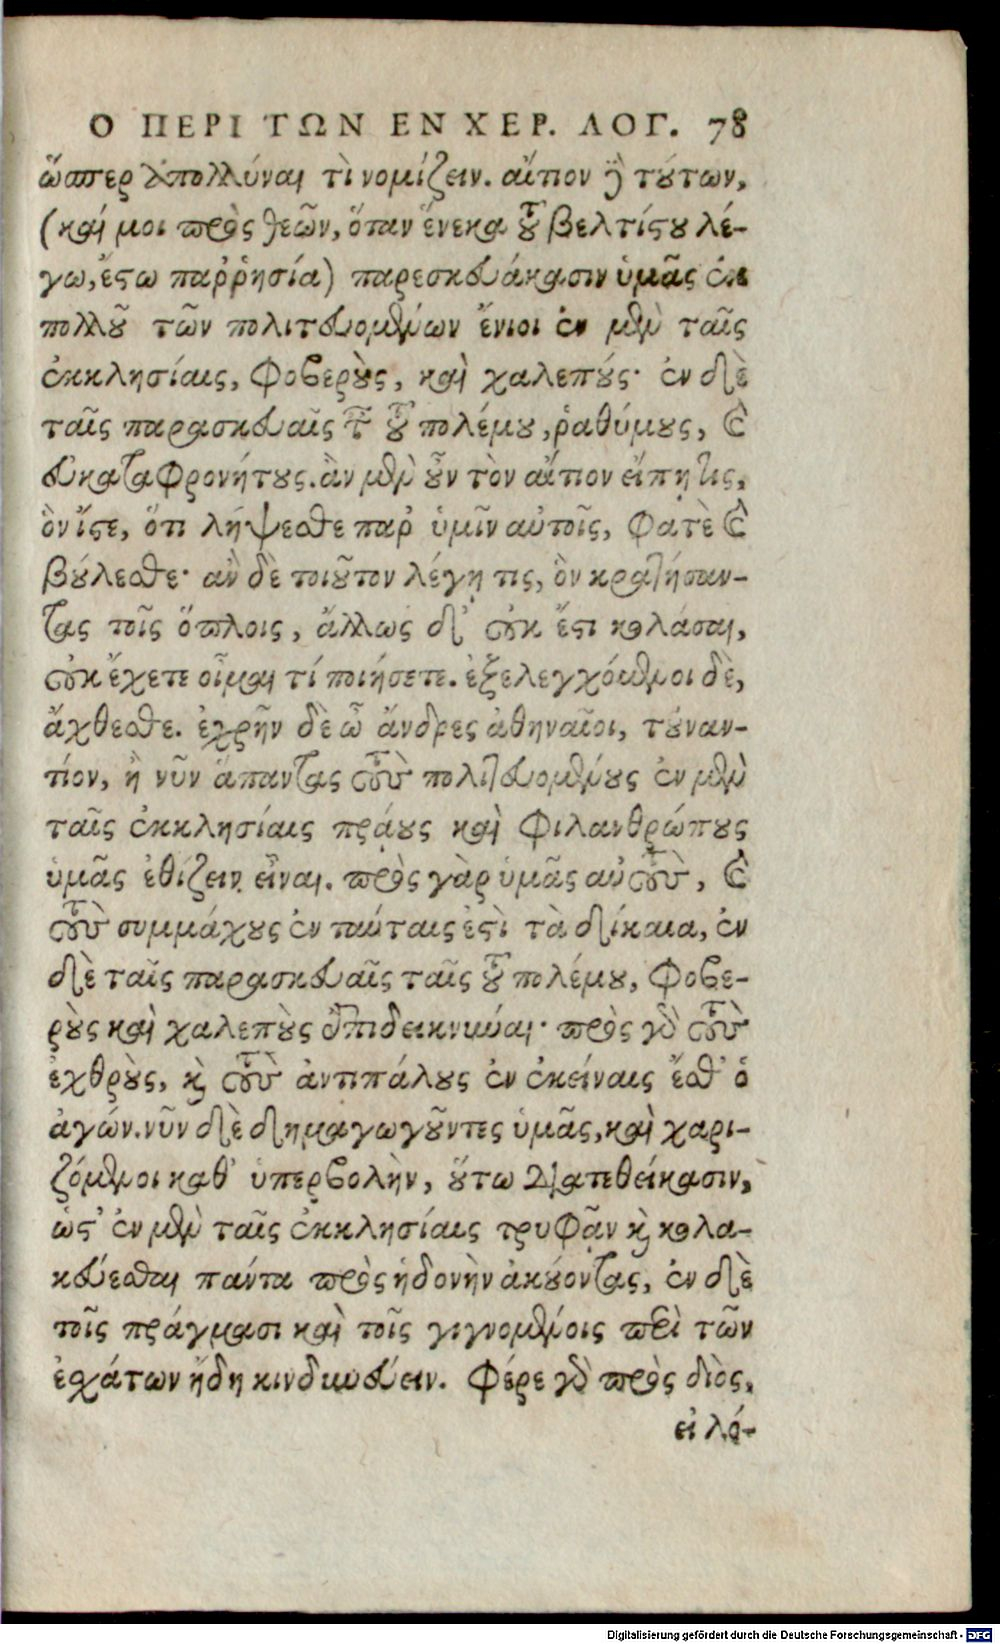 Ο ΠΕΡΙ ΤΩΝ ΕΝ ΧΕΡ. ΛΟΓ. 78
ὥσπερ ἀπολλύναι τὶ νομίζειν. αἴτιον δὲ τούτων,
(καί μοι πρὸς θεῶν, ὅταν ἕνεκα τοῦ βελτίστου λέ-
γω, ἔστω παῤῥησία) παρεσκευάκασιν ὑμᾶς ἐκ
πολλοῦ τῶν πολιτευομένων ἔνιοι ἐν μὲν ταῖς
ἐκκλησίαις, φοβεροὺς, καὶ χαλεπούς· ἐν δὲ
ταῖς παρασκευαῖς τ τοῦ πολέμου, ῥαθύμους, καὶ
εὐκαταφρονήτους. ἂν μὲν οὖν τὸν αἴτιον εἴπῃ τις,
ὃν ἴστε, ὅτι λήψεσθε παρ ὑμῖν αὐτοῖς, φατὲ καὶ
βούλεσθε· ἂν δὲ τοιοῦτον λέγῃ τις, ὃν κρατήσαν-
τας τοῖς ὅπλοις, ἄλλως δ' οὐκ ἔστι κολάσαι,
οὐκ ἔχετε οἶμαι τί ποιήσετε. ἐξελεγχόμενοι δὲ,
ἄχθεσθε. ἐχρῆν δὲ ὦ ἄνδρες ἀθηναῖοι, τοὐναν-
τίον, ἢ νῦν ἅπαντας τοὺς πολιτευομένους ἐν μὲν
ταῖς ἐκκλησίαις πράους καὶ φιλανθρώπους
ὑμᾶς ἐθίζειν εἶναι. πρὸς γὰρ ὑμᾶς αὐτοὺς, καὶ
τοὺς συμμάχους ἐν ταύταις ἐστὶ τὰ δίκαια, ἐν
δὲ ταῖς παρασκευαῖς ταῖς τοῦ πολέμου, φοβε-
ροὺς καὶ χαλεποὺς ἐπιδεικνύναι· πρὸς γὰρ τοὺς
ἐχθροὺς, καὶ τοὺς ἀντιπάλους ἐν ἐκείναις ἔσθ' ὁ
ἀγών. νῦν δὲ δημαγωγοῦντες ὑμᾶς, καὶ χαρι-
ζόμενοι καθ' ὑπερβολὴν, οὕτω διατεθείκασιν,
ὥστ' ἐν μὲν ταῖς ἐκκλησίαις τρυφᾷν καὶ κολα-
κεύεσθαι πάντα πρὸς ἡδονὴν ἀκούοντας, ἐν δὲ
τοῖς πράγμασι καὶ τοῖς γιγνομένοις περὶ τῶν
ἐσχάτων ἤδη κινδυνεύειν. Φέρε γὰρ πρὸς διὸς,
εἰ λό-
Digitalisierung gefördert durch die Deutsche Forschungsgemeinschaft - DFG